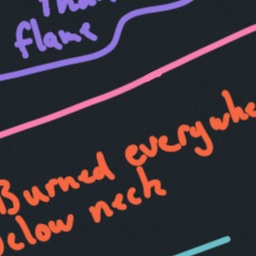 flame
Burned everywhe
below neck